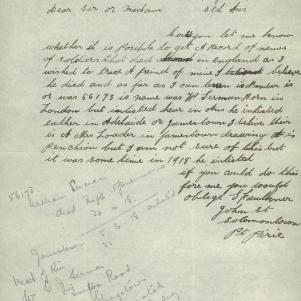 Dear Sir or Madam 5th Aus
could you let me know
whether it is Posible to get A Record of names
of soldiers that died in england as I
wished to tract A friend of mine I believe
he died and as far as I can learn is Number is
or was 56173 is name was W. Serman Born in
London but inlisted here in Aus he inlisted
eather in Adelaide or Jamestown I belive their
is A Mrs Loader in Jamestown drawing is
Penchion but I am not sure of this but
it was some time in 1918 he inlisted
if you could do this
for me you would
oblige S Faulkner
John St
Solomontown
Pt Pirie
56173
died
20. 4. 18.
Jamestown 5. 6. 18
Road